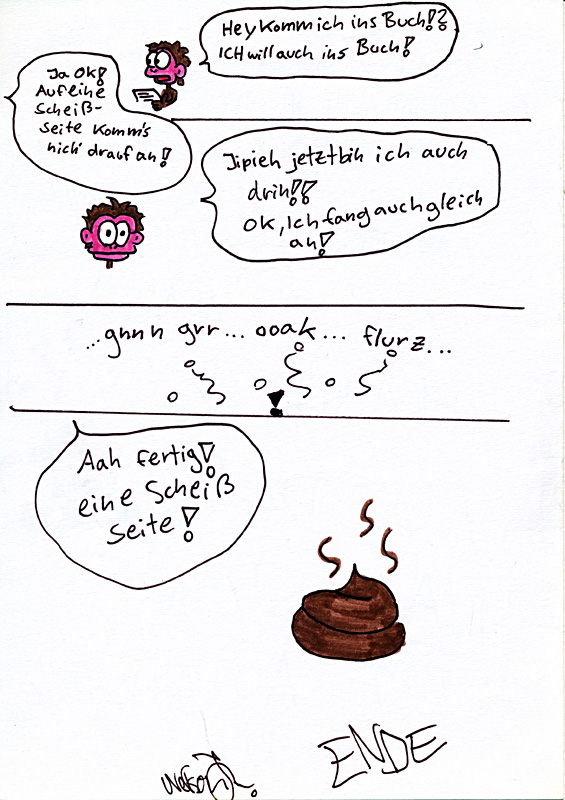 Hey Komm ich ins Buch!?
ICH will auch ins Buch!
Ja Ok!
Auf eine
Scheiß-
Seite Komm's
nich' drauf an!
Jipieh jetzt bin ich auch
drin!!
OK, Ich fang auch gleich
an!
...gnnn grr... ooak... flurz...
!
Aah fertig!
eine Scheiß
Seite!
ENDE